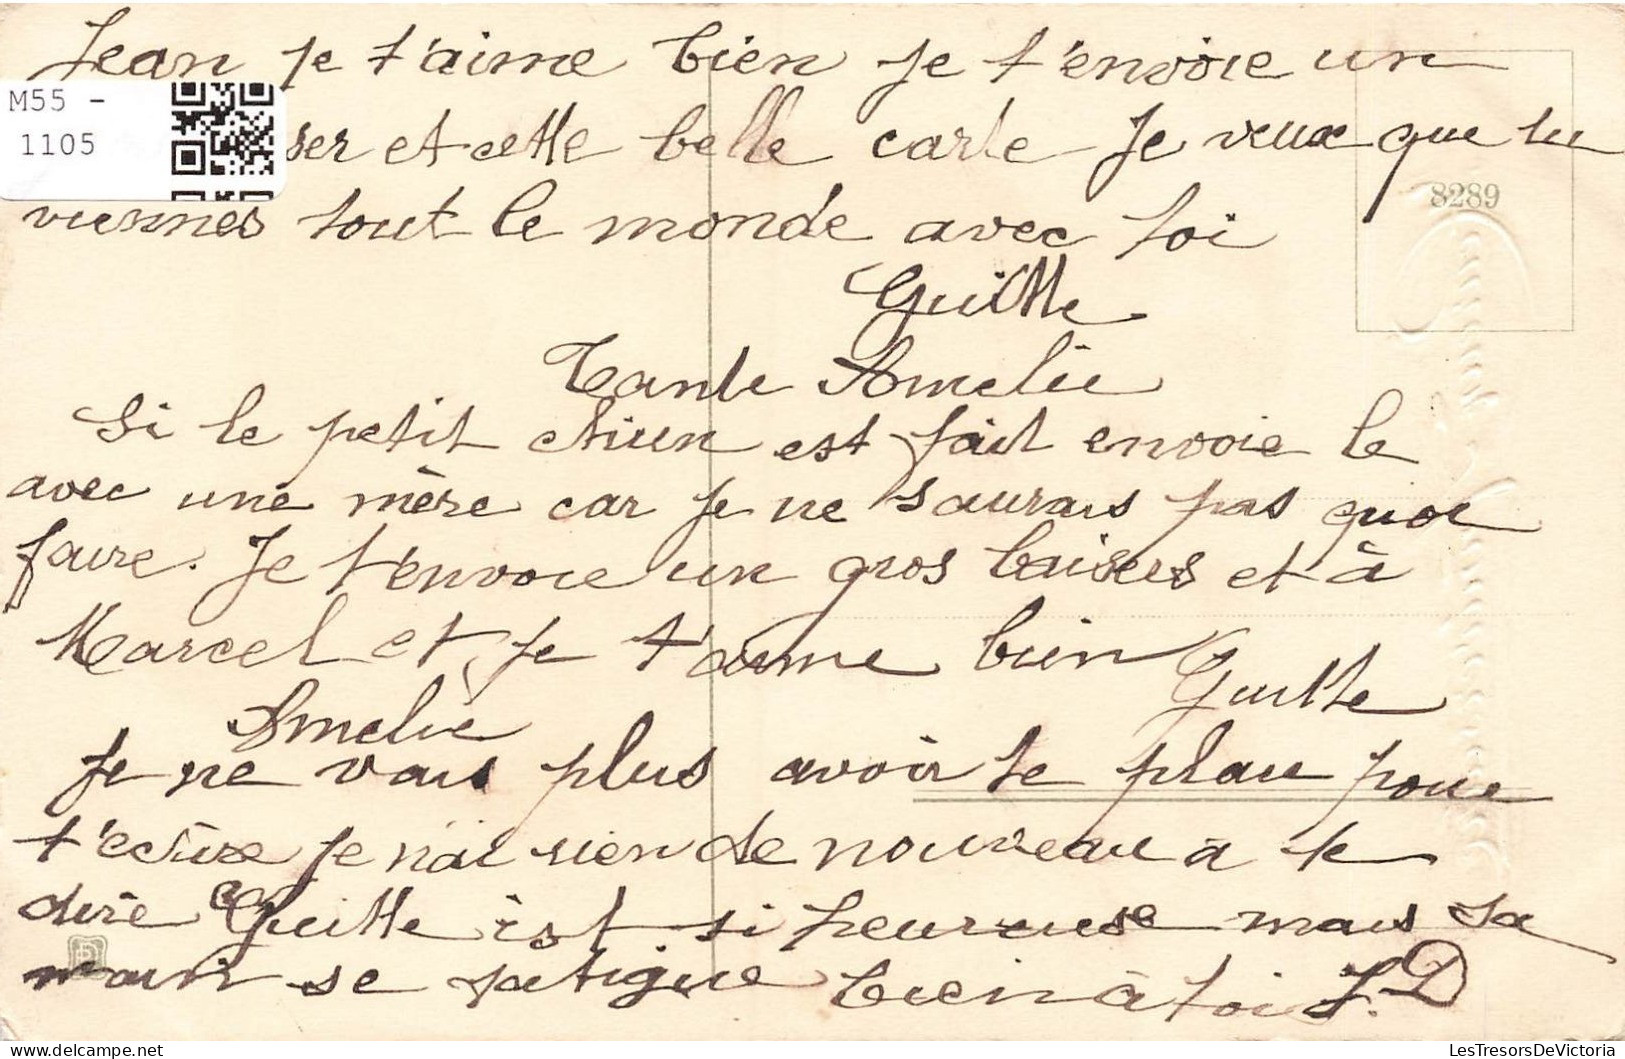 Jean je t'aime bien je t'envoie un
M55 -
1105
ser et cette belle carte Je veux que tu
8289
viennes tout le monde avec toi
Guitte
Tante Amelie
Si le petit chien est fait envoie le
avec une mère car je ne saurais pas quoi
faire. Je t'envoie un gros baisers et à
Marcel et je t'aime bien Guitte
Amelie
Je ne vais plus avoir te plau pour
t'ecrire je n'ai rien de nouveau à te
dire Guitte est si heureuse mais sa
main se fatigue bien à toi J.D
LesTresorsDeVictoria